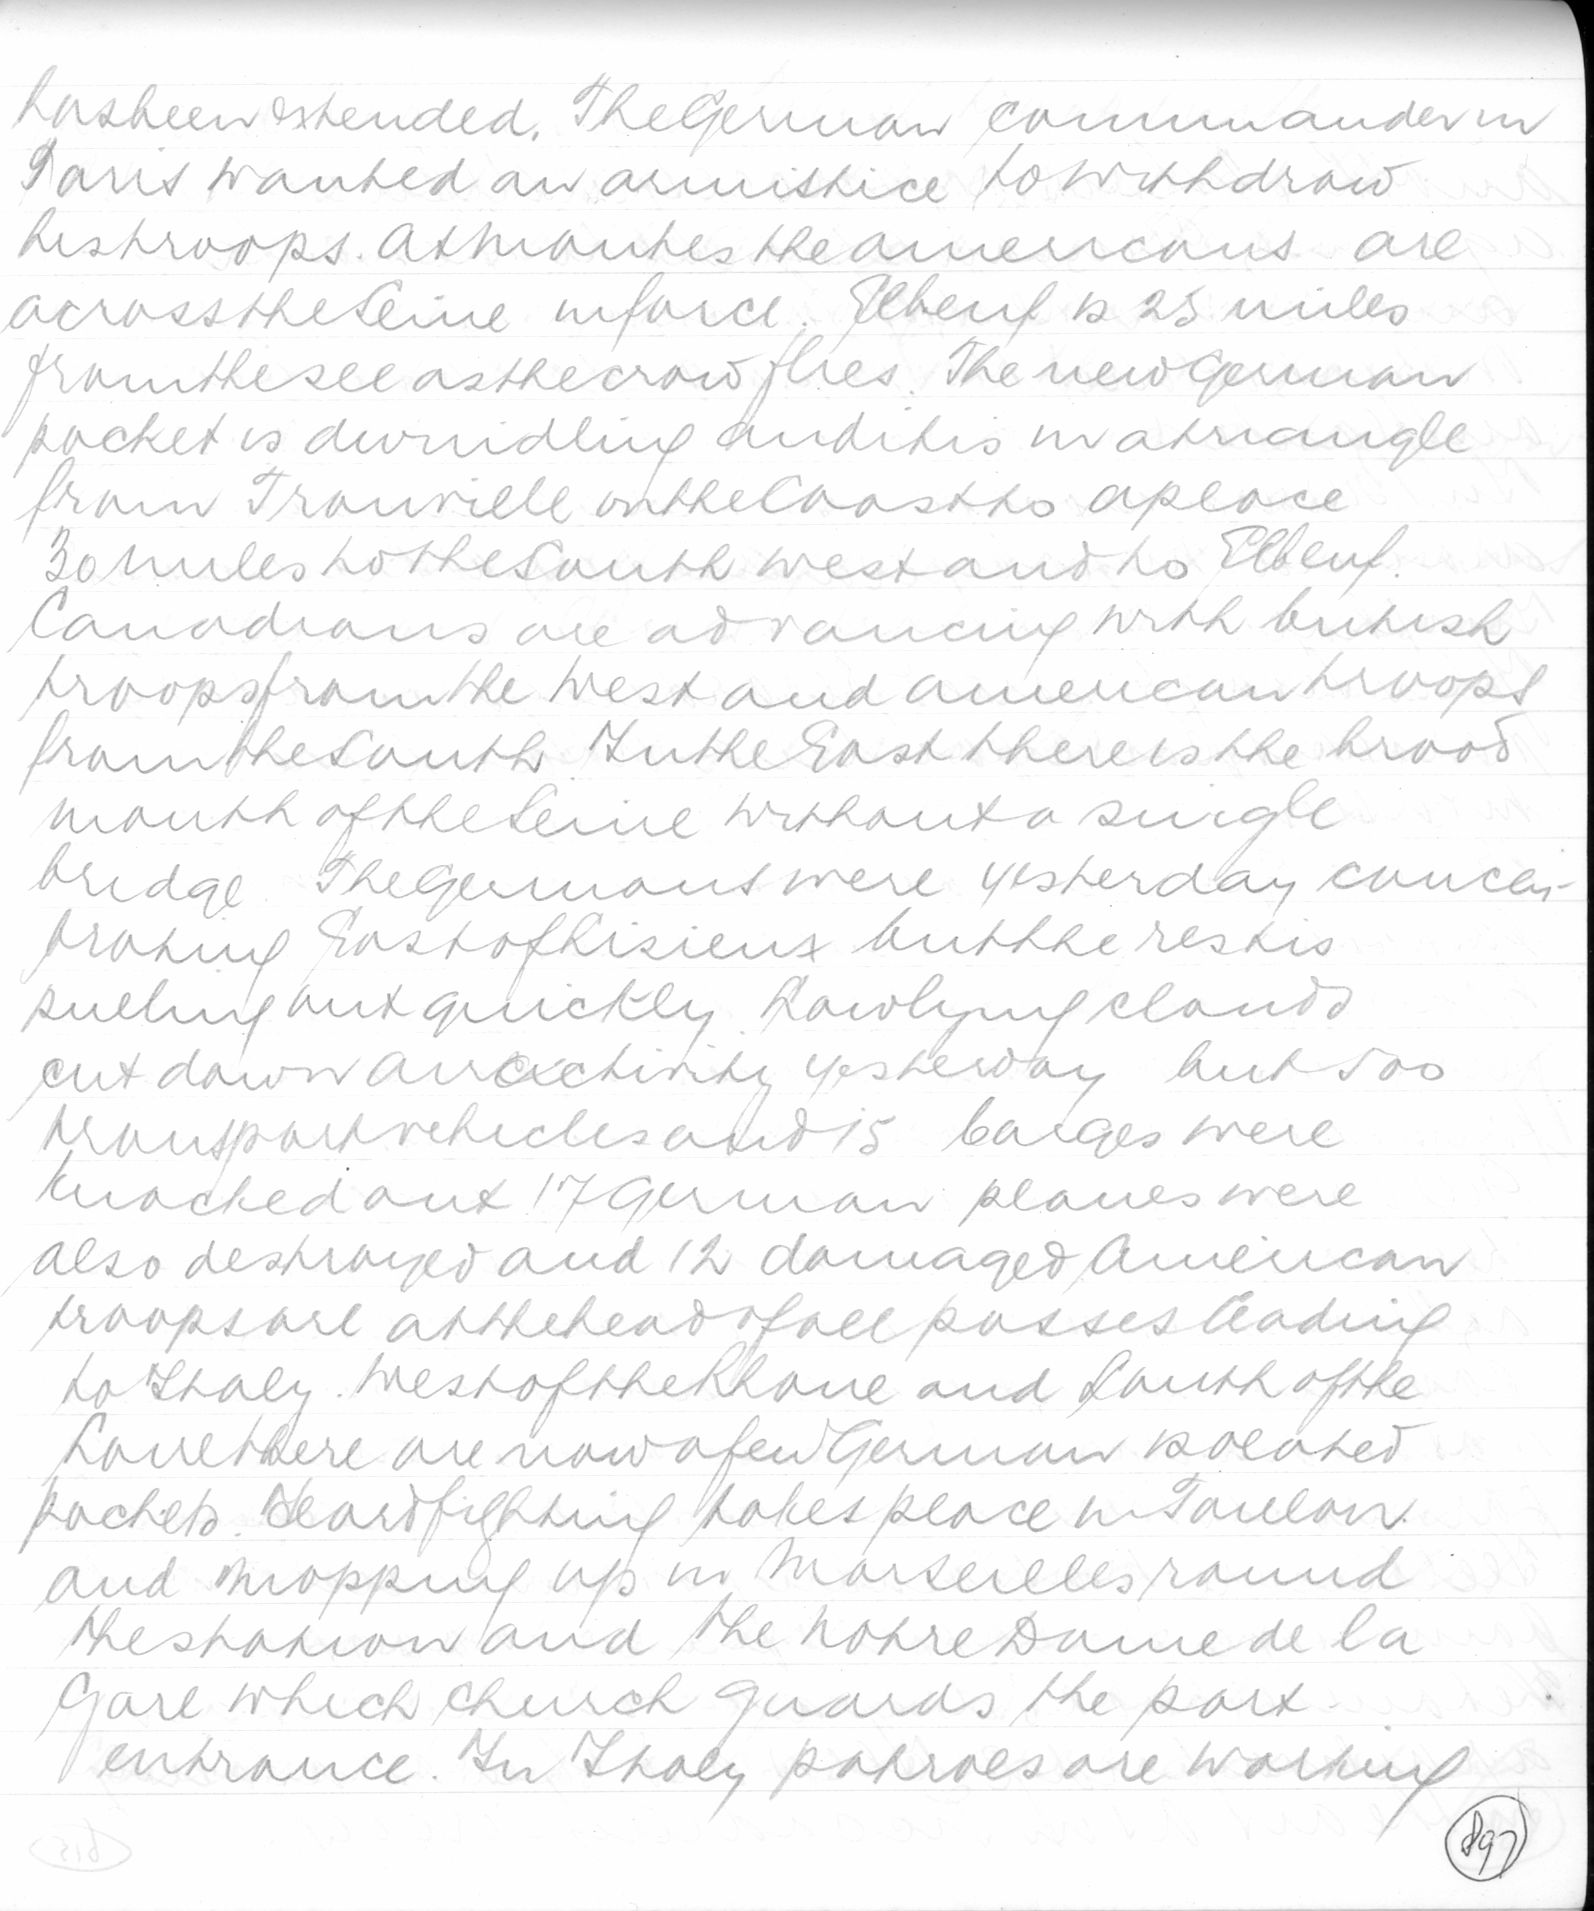 has been extended. The German commander in
Paris wanted an armistice to withdraw
his troops. At Mantes the americans are
across the Seine in force. Elbeuf is 25 miles
from the see as the crow flies. The new German
pocket is dwindling and it is in a triangle
from Trouville on the Coast to a place
30 miles to the South West and to Elbeuf.
Canadians are advancing with british
troops from the West and american troops
from the South. In the East there is the broad
mouth of the Seine without a single
bridge. The Germans were yesterday concen-
trating East of Lisieux but the rest is
pulling out quickly. Low lying clouds
cut down air activity yesterday but 500
transport vehicles and 15 barges were
knocked out. 17 German planes were
also destroyed and 12 damaged American
troops are at the head of all passes leading
to Italy. West of the Rhone and South of the
Loire there are now a few German isolated
pockets. Hard fighting takes place in Toulon.
and mopping up in Marseilles round
the station and the Notre Dame de la
Gare which church guards the port
entrance. In Italy patrols are working
897